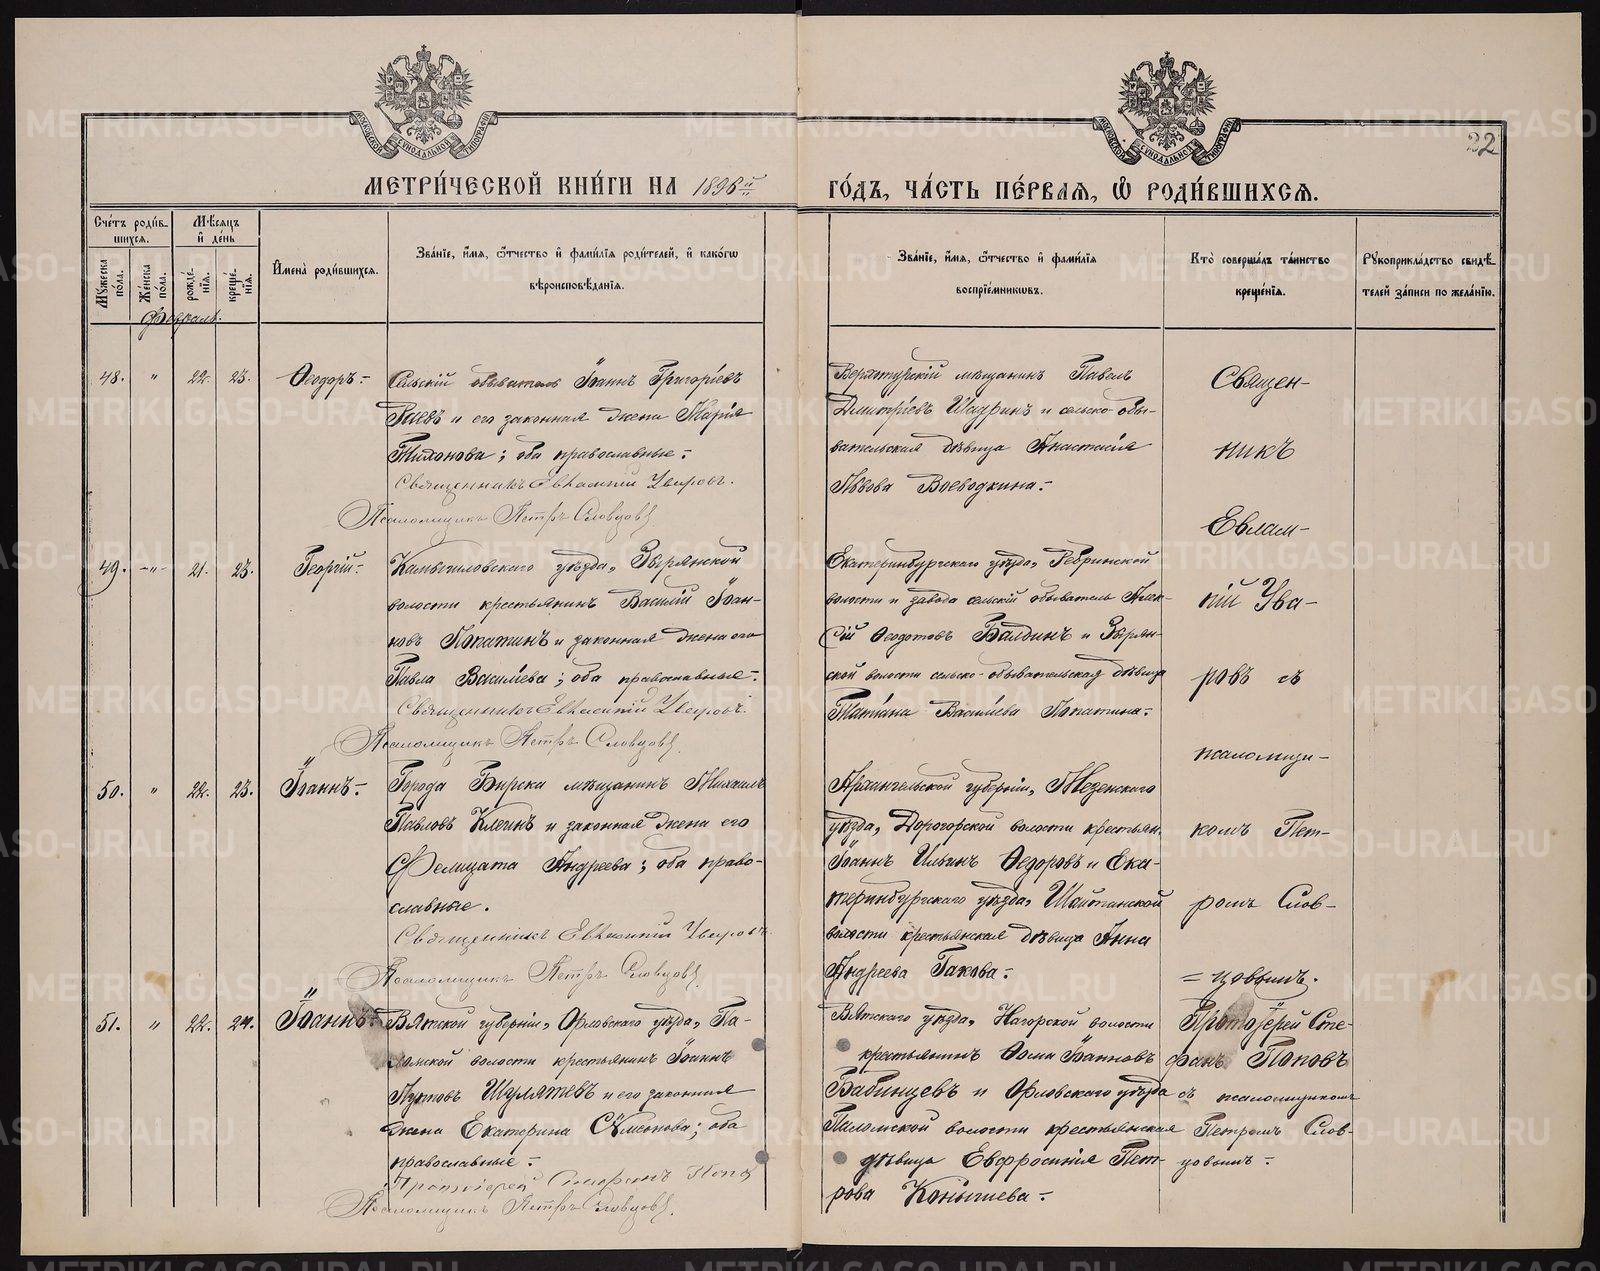 МОСКОВСКОЙ СУНОДАЛЬНОЙ ТИПОГРАФІИ
МОСКОВСКОЙ СУНОДАЛЬНОЙ ТИПОГРАФІИ
22
МЕТРИ́ЧЕСКОЙ КНИ́ГИ НА 1896й
ГО́ДЪ, ЧА́СТЬ ПЕ́РВАЯ, Ѽ РОДИ́ВШИХСЯ.
Сче́тъ роди́в-
шихся.
Мꙋ́жеска по́ла.
Же́нска по́ла.
Мѣ́сяцъ
и҆ де́нь
рожде́нія.
креще́нія.
И҆мена̀ роди́вшихся.
Зва́ніе, и҆́мя, ѻ҆́тчество и҆ фами́лія роди́телей, и҆ како́гѡ
вѣроисповѣ́данія.
Зва́ніе, и҆́мя, ѻ҆́тчество и҆ фами́лія
воспріе́мникѡвъ.
Кто̀ соверша́лъ та́инство
креще́нія.
Рꙋкоприкла́дство свидѣ́-
телей за́писи по жела́нію.
Февраль.
48. " 22. 23. Ѳеодоръ.-
Сельскій обыватель Іоаннъ Григоріевъ
и его законная жена Марія
Тихонова; оба православные.-
Священникъ Евлампій Уваровъ.
Псаломщикъ Петръ Словцовъ
Верхотурскій мѣщанинъ Павелъ
Дмитріевъ Шадринъ и сельско-обы-
вательская дѣвица Анастасія
Львова Воеводкина.-
49. -"- 21. 23. Георгій.-
Камышловскаго уѣзда, Зырянской
волости крестьянинъ Василій Іоан-
новъ Лопатинъ и законная жена его
Павла Васильева; оба православные.-
Священникъ Евлампій Уваровъ.
Псаломщикъ Петръ Словцовъ.
Екатеринбургскаго уѣзда,
волости и завода сельскій обыватель Алек-
сій Ѳеодотовъ Балдинъ и Зырян-
ской волости сельско-обывательская дѣвица
Татіана Васильева Лопатина.-
50. " 22. 23. Іоаннъ.-
Города Бирска мѣщанинъ Михаилъ
Павловъ Клегинъ и законная жена его
Фелицата Андреева; оба право-
славные.
Священникъ Евлампій Уваровъ.
Псаломщикъ Петръ Словцовъ.
Архангельской губерніи, Мезенскаго
уѣзда, Дорогорской волости крестьян.
Іоаннъ Ильинъ Ѳедоровъ и Ека-
теринбургскаго уѣзда, Шайтанской
волости крестьянская дѣвица Анна
Андреева
Священ-
никъ
Евлам-
пій Ува-
ровъ съ
псаломщи-
комъ Пет-
ромъ Слов-
=цовымъ.
51. " 22. 24. Іоаннъ.-
Вятской губерніи, Орловскаго уѣзда, Пи-
ломской волости крестьянинъ Іоаннъ
Шулятевъ и его законная
жена Екатерина Сѵмеонова; оба
православные.-
Протоіерей Стефанъ Поповъ
Псаломщикъ Петръ Словцовъ.
Вятскаго уѣзда, Нагорской волости
крестьянинъ Ѳома Іоанновъ
Бабинцевъ и Орловскаго уѣзда
Пиломской волости крестьянская
дѣвица Евфросинія Пет-
рова Конышева.-
Протоіерей Сте-
фанъ Поповъ
съ псаломщикомъ
Петромъ Слов-
цовымъ.-
METRIKI.GASO-URAL.RU